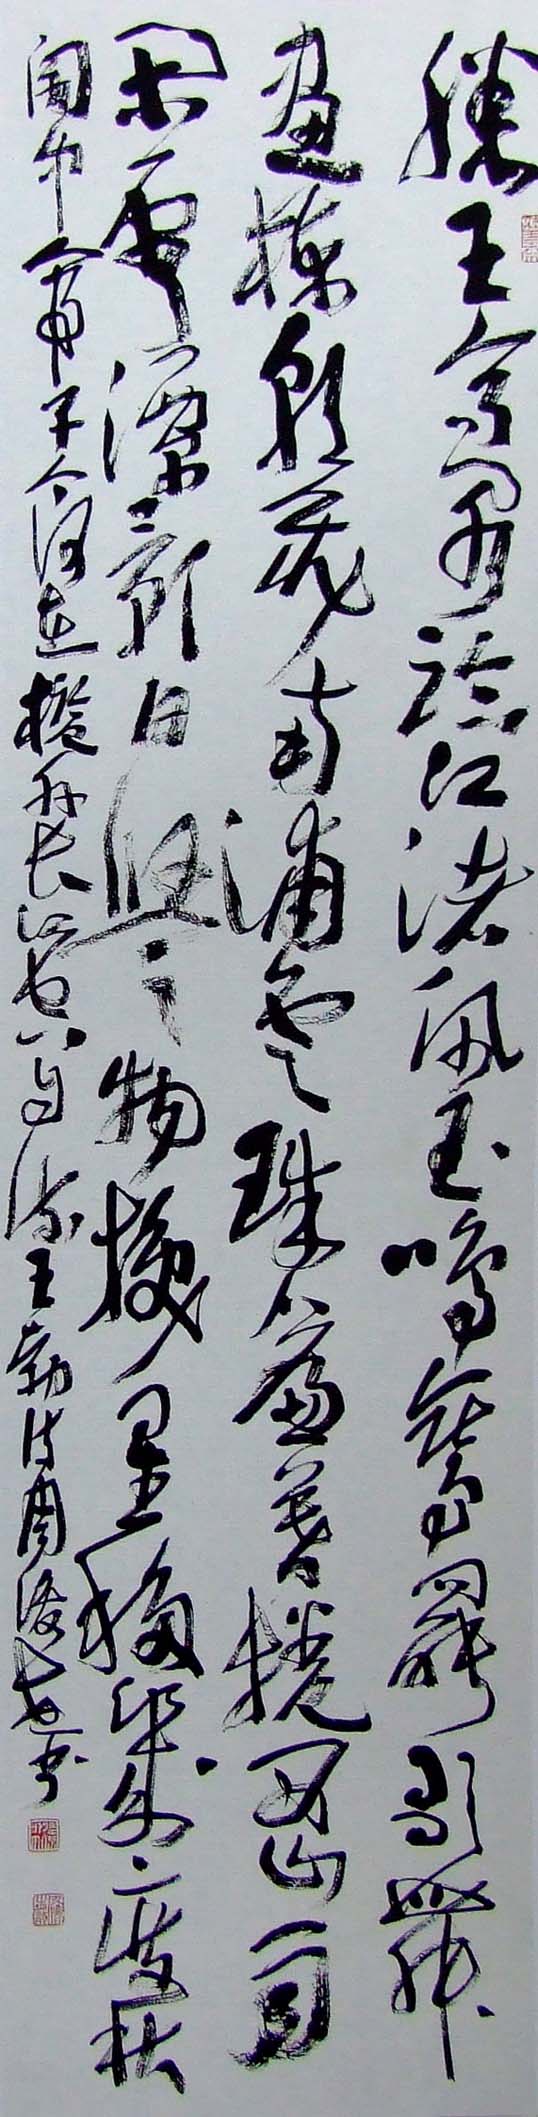 滕王高閣臨江渚佩玉鳴鸞罷歌舞
畫棟朝飛南浦雲珠簾暮捲西山雨
閑雲潭影日悠々物換星移幾度秋
閣中帝子今何在檻外長江空自流王勃詩